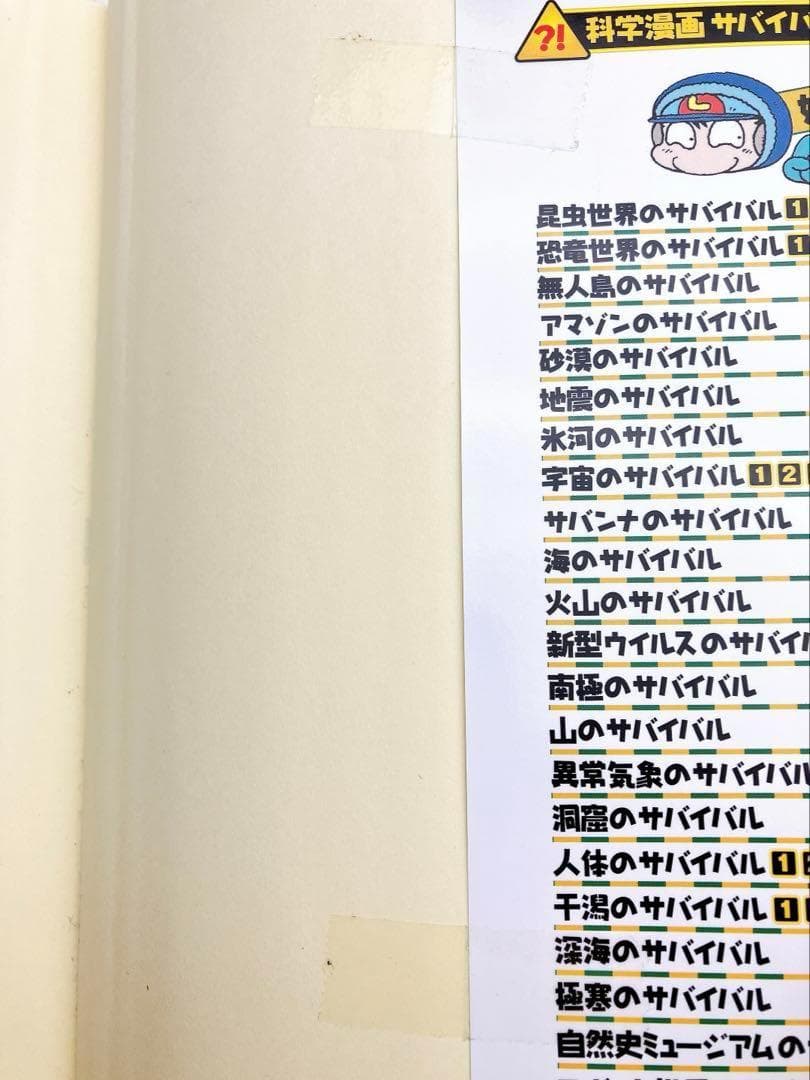 ?! 科学漫画 サバイバ
昆虫世界のサバイバル 1
恐竜世界のサバイバル 1
無人島のサバイバル
アマゾンのサバイバル
砂漠のサバイバル
地震のサバイバル
氷河のサバイバル
宇宙のサバイバル 1 2
サバンナのサバイバル
海のサバイバル
火山のサバイバル
新型ウイルスのサバイ
南極のサバイバル
山のサバイバル
異常気象のサバイバル
洞窟のサバイバル
人体のサバイバル 1
干潟のサバイバル 1
深海のサバイバル
極寒のサバイバル
自然史ミュージアムの